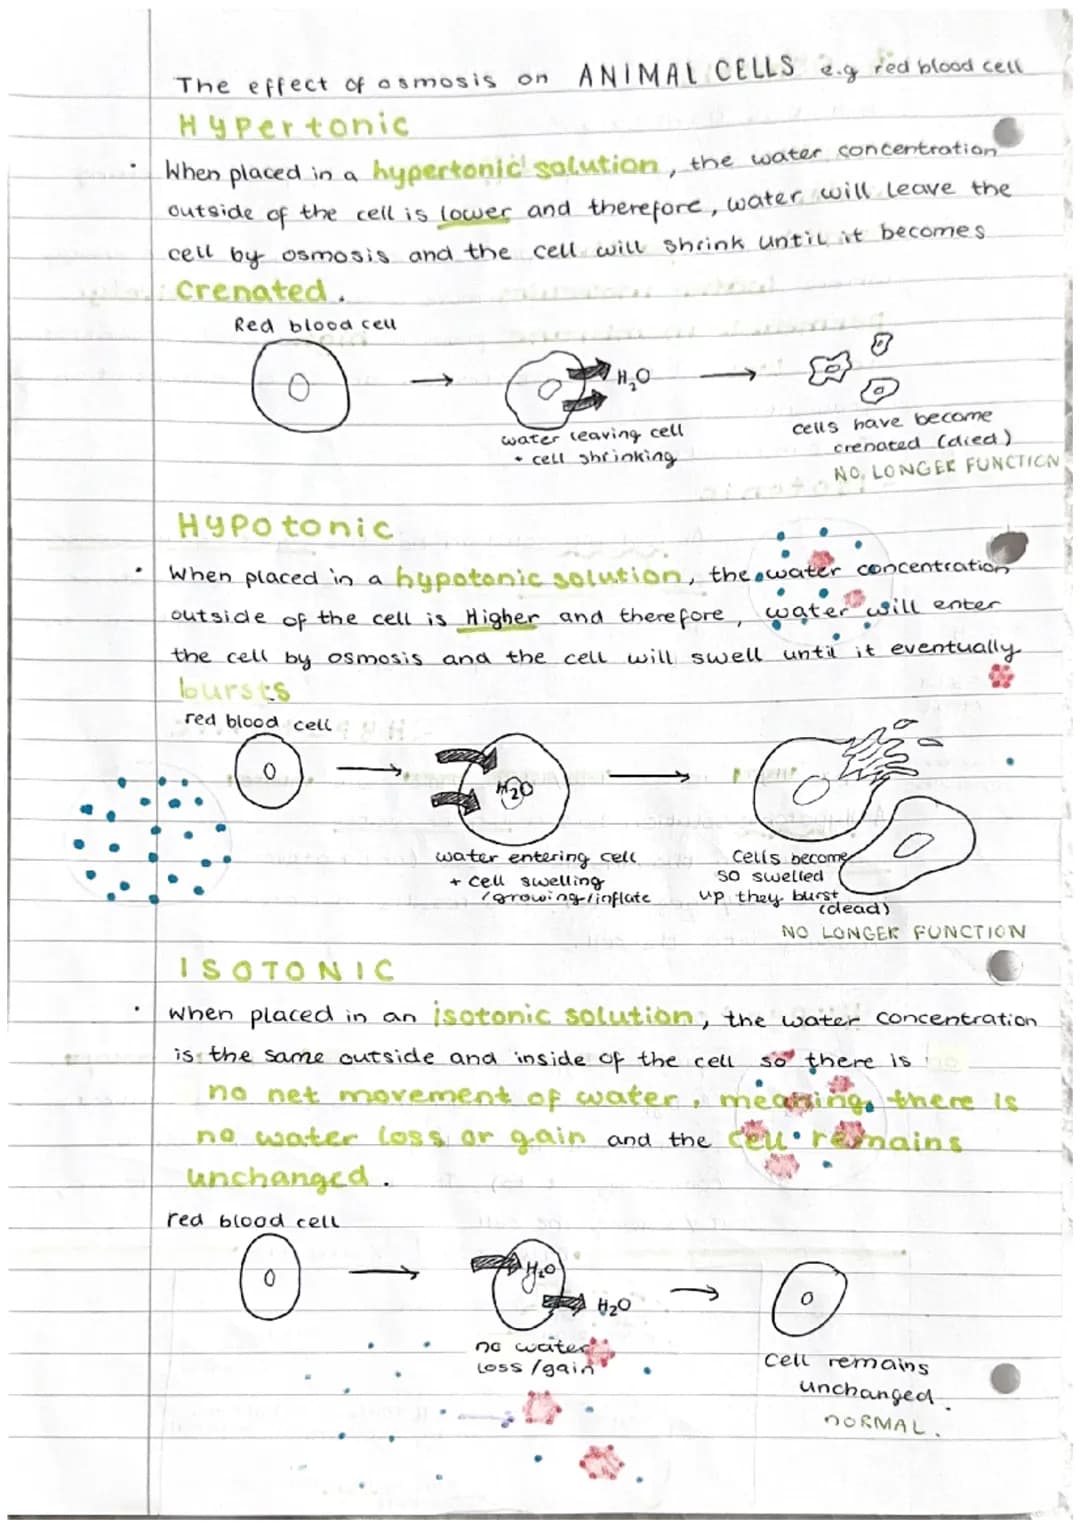 The effect of osmosis on ANIMAL CELLS e.g red blood cell
Hypertonic
• When placed in a hypertonic solution, the water concentration
outside of the cell is lower and therefore, water will leave the
cell by osmosis and the cell will shrink until it becomes
Crenated.
Red blood cell
H₂O
water leaving cell
+ cell shrinking
cells have become
crenated (died)
NO LONGER FUNCTION
Hypotonic
• When placed in a hypotonic solution, the water concentration
outside of the cell is Higher and therefore, water will enter
the cell by osmosis and the cell will swell until it eventually
bursts
red blood cell
H₂O
water entering cell
+ cell swelling
/growing/inflate
Cells become
so swelled
up they burst
(dead)
NO LONGER FUNCTION
ISOTONIC
• When placed in an isotonic solution, the water concentration
is the same outside and inside of the cell so there is
no net movement of water, meaning there is
no water loss or gain and the cell remains
unchanged.
red blood cell
H₂O
H₂O
no water
loss/gain
Cell remains
unchanged.
NORMAL.